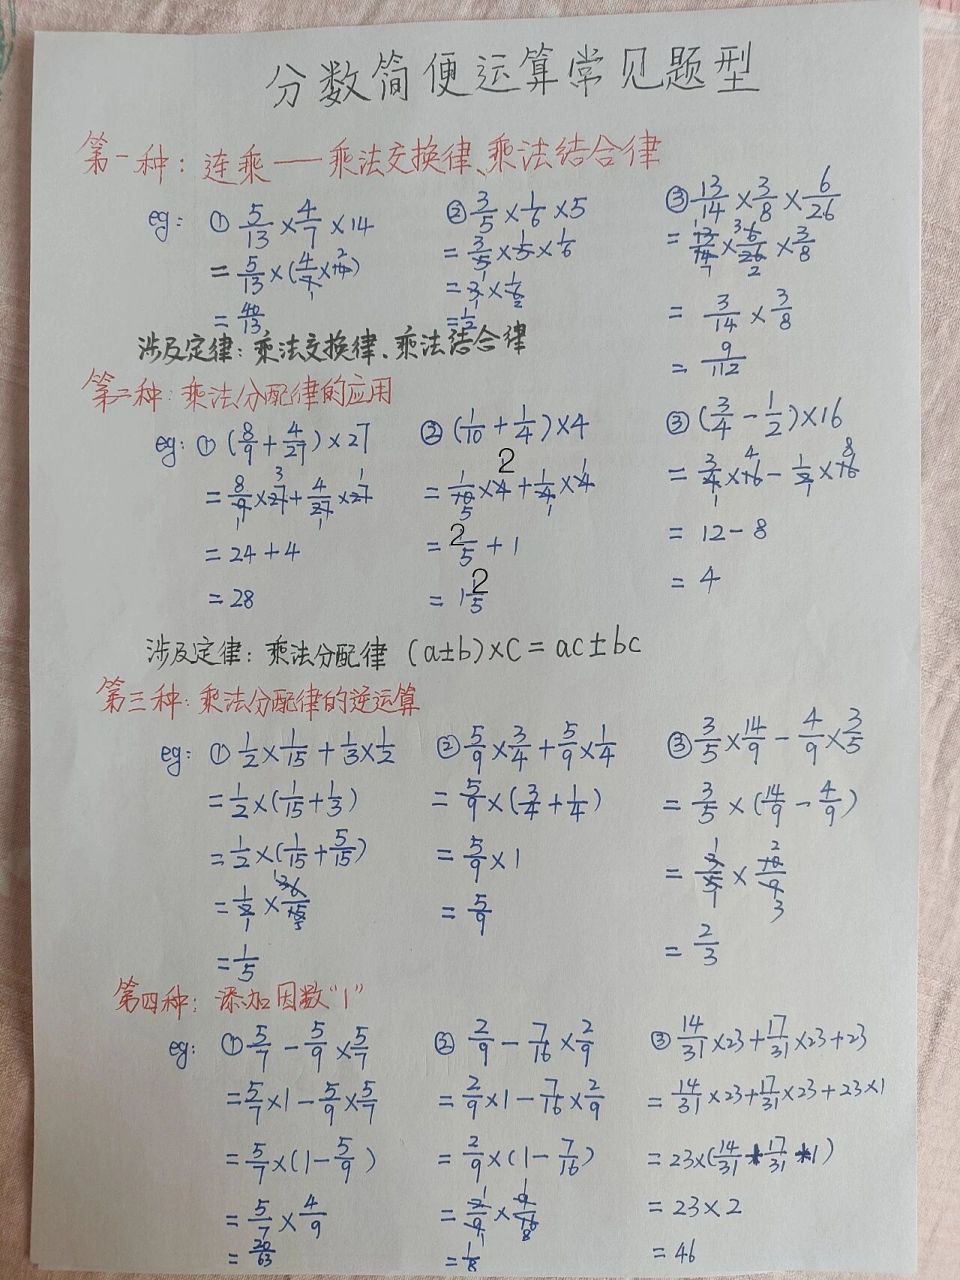 分数简便运算常见题型
第一种：连乘——乘法交换律、乘法结合律
eg: ① 5/13 × 4/7 × 14
= 5/13 × (4/7 × 14)
= 40/13
② 3/5 × 1/6 × 5
= 3/5 × 5 × 1/6
= 3 × 1/6
= 1/2
③ 13/14 × 3/8 × 6/26
= 13/14 × 6/26 × 3/8
= 3/14 × 3/8
= 9/112
涉及定律：乘法交换律、乘法结合律
第二种：乘法分配律的应用
eg: ① (8/9 + 4/27) × 27
= 8/9 × 27 + 4/27 × 27
= 24 + 4
= 28
② (1/10 + 1/4) × 4
= 1/10 × 4 + 1/4 × 4
= 2/5 + 1
= 1 2/5
③ (3/4 - 1/2) × 16
= 3/4 × 16 - 1/2 × 16
= 12 - 8
= 4
涉及定律：乘法分配律 (a±b)×c = ac±bc
第三种：乘法分配律的逆运算
eg: ① 1/2 × 1/15 + 1/3 × 1/2
= 1/2 × (1/15 + 1/3)
= 1/2 × (1/15 + 5/15)
= 1/2 × 6/15
= 1/5
② 5/9 × 3/4 + 5/9 × 1/4
= 5/9 × (3/4 + 1/4)
= 5/9 × 1
= 5/9
③ 3/5 × 14/9 - 4/9 × 3/5
= 3/5 × (14/9 - 4/9)
= 3/5 × 10/9
= 2/3
第四种：添加因数“1”
eg: ① 5/7 - 5/9 × 5/7
= 5/7 × 1 - 5/9 × 5/7
= 5/7 × (1 - 5/9)
= 5/7 × 4/9
= 20/63
② 2/9 - 7/16 × 2/9
= 2/9 × 1 - 7/16 × 2/9
= 2/9 × (1 - 7/16)
= 2/9 × 9/16
= 1/8
③ 14/31 × 23 + 17/31 × 23 + 23
= 14/31 × 23 + 17/31 × 23 + 23 × 1
= 23 × (14/31 + 17/31 + 1)
= 23 × 2
= 46